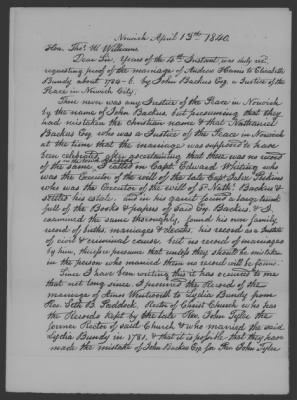 Norwich April 13th 1840.
Hon. Thos. W. Williams.
Dear Sir, Yours of the 4th Instant, was duly rec.
requesting proof of the marriage of Andrew Harris to Elizabeth
Bundy about 1784-6. by John Backus Esq. a Justice of the
Peace in Norwich City.
There never was any Justice of the Peace in Norwich
by the name of John Backus, but presuming that they
had mistaken the christian name & that Nathaniel
Backus Esq. who was a Justice of the Peace in Norwich
at the time that the marriage was supposed to have
been celebrated, after ascertaining that there was no record
of the same, I called on Capt. Edward Whiting who
was the Executor of the will of the late Capt. Jabez Perkins
who was the Executor of the will of Sd. Nathl. Backus &
settled his estate, and in his garret found a large trunk
full of the Books & papers of said Esq. Backus. & I
examined the same thoroughly, found his own family
record of births, marriages & deaths, his record as Justice
of civil & criminal cause, but no record of marriages
by him, therefore presume that unless they should be mistaken
in the person who married them no record will be found.
Since I have been writing this it has occurred to me
that not long since I procured the Record of the
marriage of Wentworth to Lydia Bundy from
Rev. Seth B. Paddock, Rector of Christ Church who has
the Records kept by the late Rev. John Tyler the
former Rector of said Church & who married the said
Lydia Bundy in 1781, & that it is possible that they have
made the mistake of John Backus Esq. for Rev. John Tyler